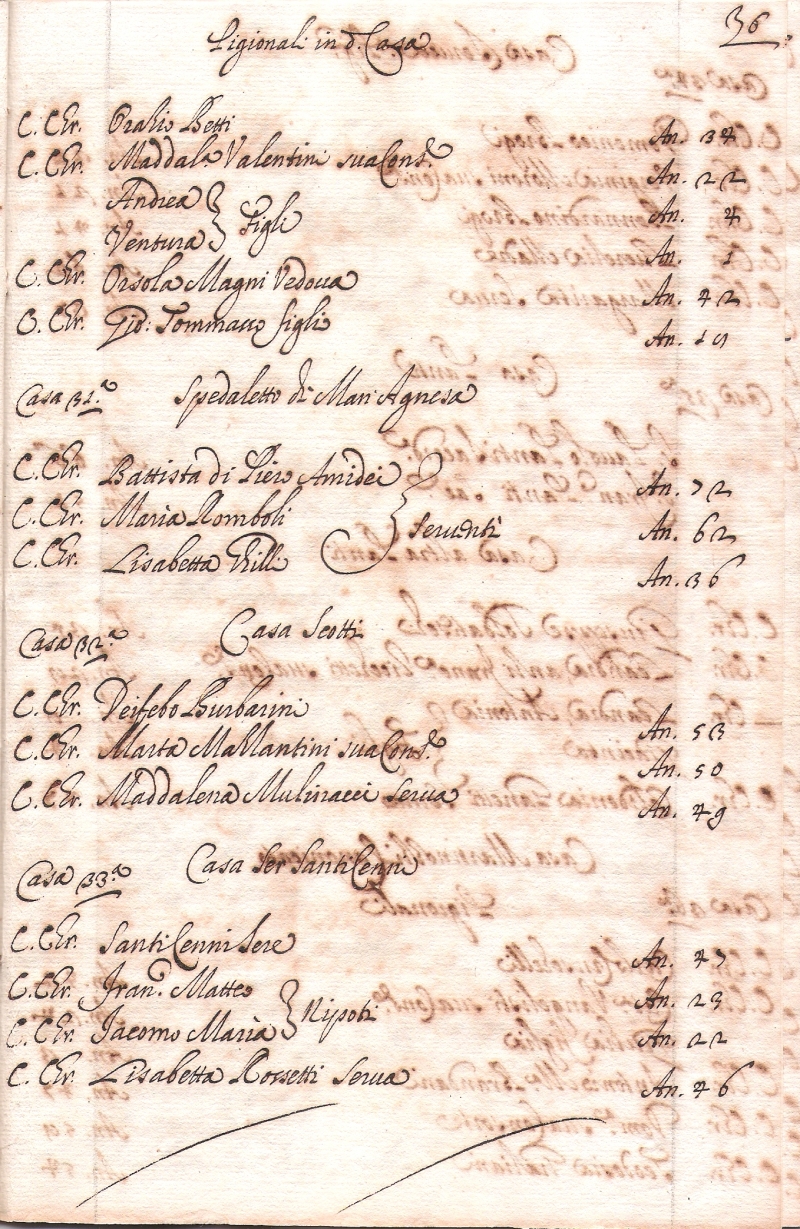 36
Pigionali in d.ª Casa
C. Chr. Orazio Betti An. 34
C. Chr. Maddal.ª Valentini sua Cons.e An. 22
Andrea } An. 4
Ventura } Figli An. 1
C. Chr. Orsola Magni Vedoua An. 42
C. Chr. Gio: Tommaso figlio An. 19
Casa 31.ª Spedaletto di Mari Agnesa
C. Chr. Battista di Piero Amidei } An. 72
C. Chr. Maria Romboli } Seruenti An. 62
C. Chr. Lisabetta } An. 36
Casa 32.ª Casa Scotti
C. Chr. Deifebo Burbarini An. 53
C. Chr. Marta Mallantini sua Cons.e An. 50
C. Chr. Maddalena Mulinacci Serua An. 49
Casa 33.ª Casa Ser Santi Cenni
C. Chr. Santi Cenni Sere An. 47
C. Chr. Fran.º Matteo } An. 23
C. Chr. Iacomo Maria } Nipoti An. 22
C. Chr. Lisabetta Rossetti Serua An. 46